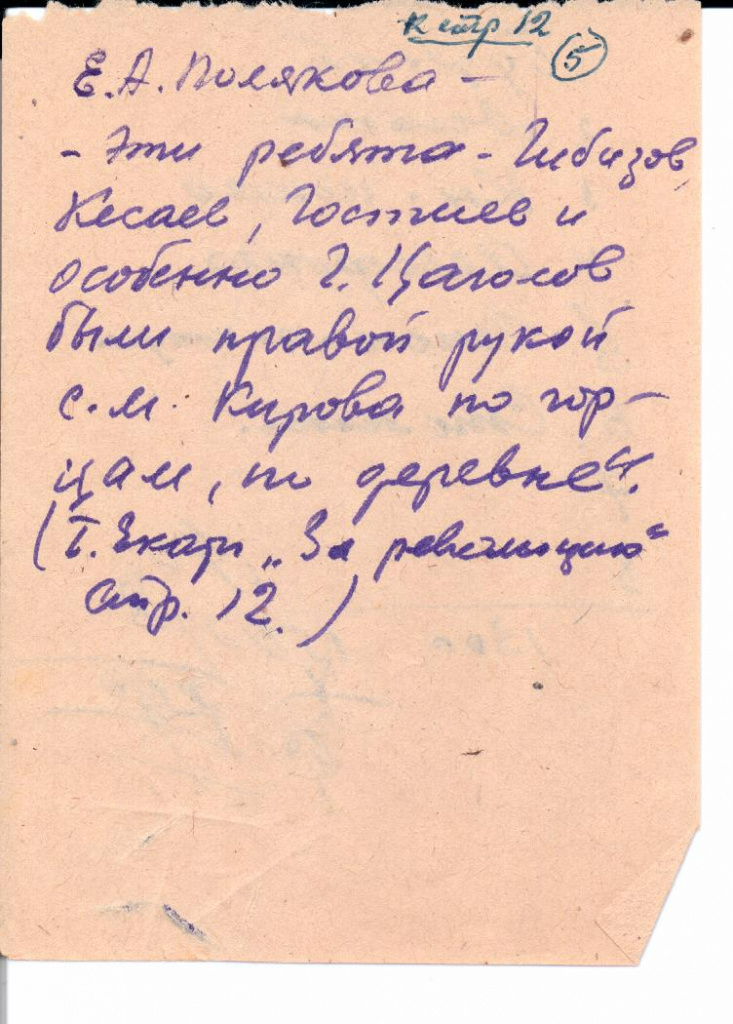 к стр 12
5
Е. А. Полякова –
– Эти ребята – Гибизов,
Кесаев, Гостиев и
особенно Г. Цаголов
были правой рукой
С. М. Кирова по гор-
цам, по деревне".
(Т. Екати „За революцию"
стр. 12.)